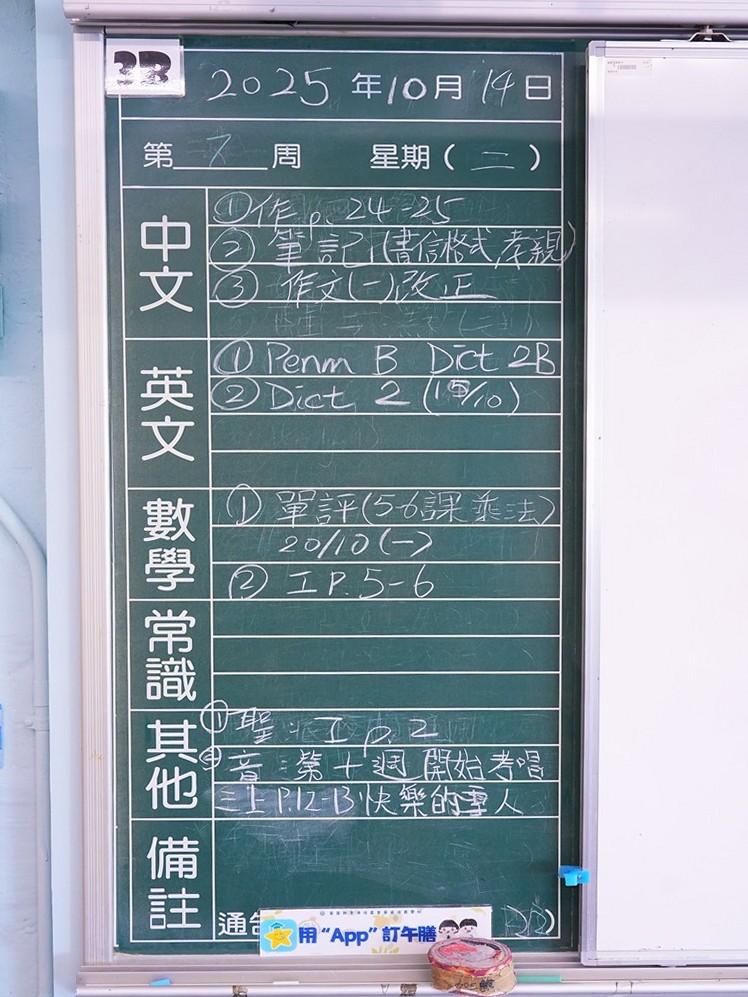 3B
2025年10月14日
第7周 星期(二)
中文
①作 p. 24-25
② 筆記(書信格式,孝親)
③ 作文(一)改正
英文
① Penm B Dict 2B
② Dict 2 (15/10)
數學
① 單評(5-6課乘法)
20/10(一)
② 工 P.5-6
常識
其他
① 聖 工 p. 2
② 音:第十週開始考唱
三上P.12-13快樂的
人
備註
通告
用“App”訂午膳